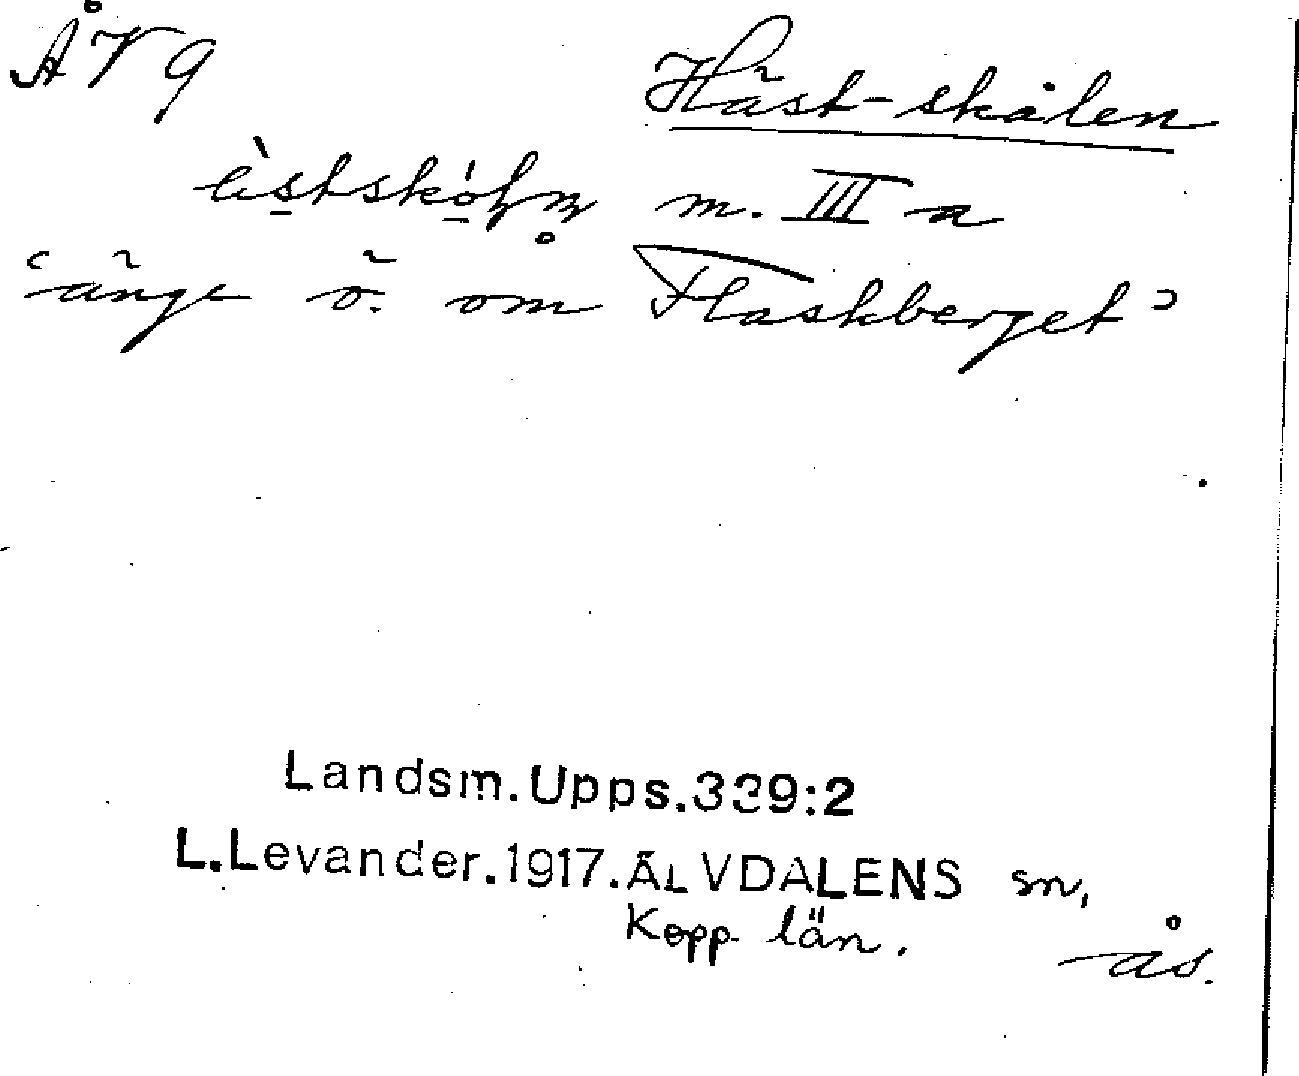 ÅV9
Häst-skålen
m. III a
‘änge ö. om Flaskberget’
Landsm.Upps.339:2
L.Levander.1917.ÄLVDALENS sn,
Kopp län.
ås.